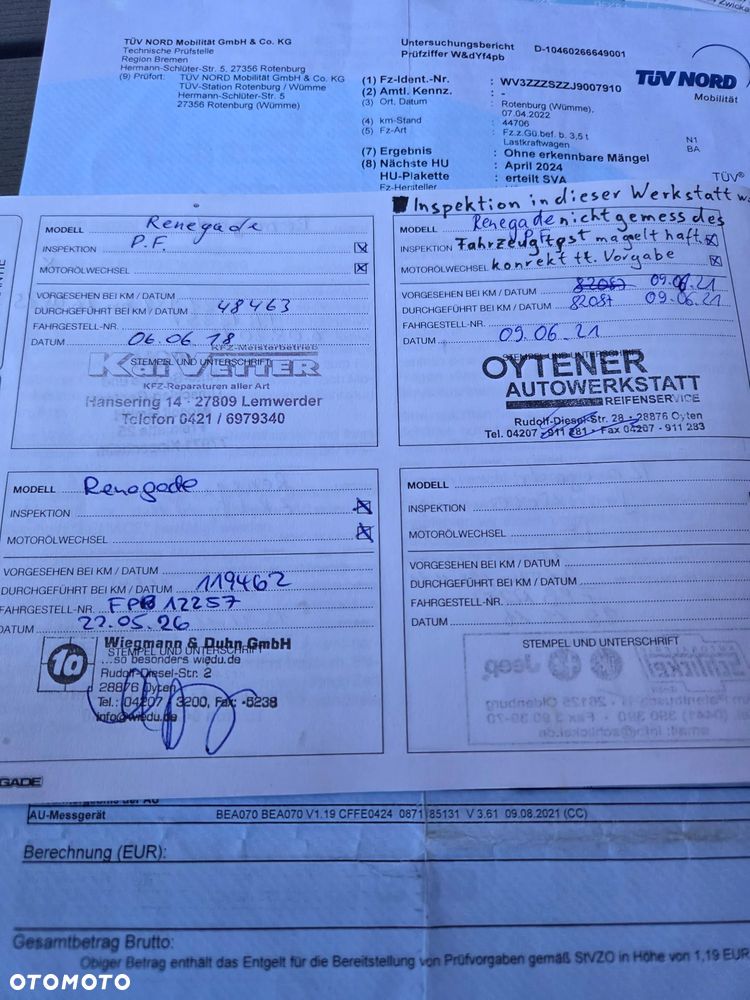 Zwicka
TÜV NORD Mobilität GmbH & Co. KG
Technische Prüfstelle
Region Bremen
Hermann-Schlüter-Str. 5, 27356 Rotenburg
(9) Prüfort: TÜV NORD Mobilität GmbH & Co. KG
TÜV-Station Rotenburg / Wümme
Hermann-Schlüter-Str. 5
27356 Rotenburg (Wümme)
Untersuchungsbericht D-10460266649001
Prüfziffer W&dYf4pb
(1) Fz-Ident.-Nr. : WV3ZZZSZZJ9007910
(2) Amtl. Kennz. : -
(3) Ort, Datum : Rotenburg (Wümme),
07.04.2022
(4) km-Stand : 44706
(5) Fz-Art : Fz.z.Gü.bef. b. 3,5 t N1
Lastkraftwagen BA
(7) Ergebnis : Ohne erkennbare Mängel
(8) Nächste HU : April 2024
HU-Plakette : erteilt SVA
Fz-Hersteller
TÜV NORD
Mobilität
TÜV®
MODELL Renegade
P.F.
INSPEKTION
MOTORÖLWECHSEL
VORGESEHEN BEI KM / DATUM
DURCHGEFÜHRT BEI KM / DATUM 48463
FAHRGESTELL-NR.
DATUM 06.06.18
STEMPEL UND UNTERSCHRIFT
KFZ-Meisterbetrieb
Kai Vetter
KFZ-Reparaturen aller Art
Hansering 14 · 27809 Lemwerder
Telefon 0421 / 6979340
Inspektion in dieser Werkstatt
MODELL Renegade nicht gemess des
P.F.
INSPEKTION
MOTORÖLWECHSEL konrekt tt. Vorgabe
VORGESEHEN BEI KM / DATUM 82087 09.06.21
DURCHGEFÜHRT BEI KM / DATUM 82087 09.06.21
FAHRGESTELL-NR.
DATUM 09.06.21
STEMPEL UND UNTERSCHRIFT
OYTENER
AUTOWERKSTATT
REIFENSERVICE
Rudolf-Diesel-Str. 28 · 28876 Oyten
Tel. 04207 - 911 281 · Fax 04207 - 911 283
MODELL Renegade
INSPEKTION
MOTORÖLWECHSEL
VORGESEHEN BEI KM / DATUM
DURCHGEFÜHRT BEI KM / DATUM 119462
FAHRGESTELL-NR. FPB 12257
DATUM 22.05.26
STEMPEL UND UNTERSCHRIFT
1a
Wiegmann & Duhn GmbH
...so besonders wiedu.de
Rudolf-Diesel-Str. 2
28876 Oyten
Tel.: 04207 / 3200, Fax: -5238
info@wiedu.de
MODELL
INSPEKTION
MOTORÖLWECHSEL
VORGESEHEN BEI KM / DATUM
DURCHGEFÜHRT BEI KM / DATUM
FAHRGESTELL-NR.
DATUM
STEMPEL UND UNTERSCHRIFT
Jeep
GADE
AU-Messgerät BEA070 BEA070 V1.19 CFFE0424 0871 85131 V 3.61 09.08.2021 (CC)
Berechnung (EUR):
Gesamtbetrag Brutto:
Obiger Betrag enthält das Entgelt für die Bereitstellung von Prüfvorgaben gemäß StVZO in Höhe von 1,19 EUR
OTOMOTO